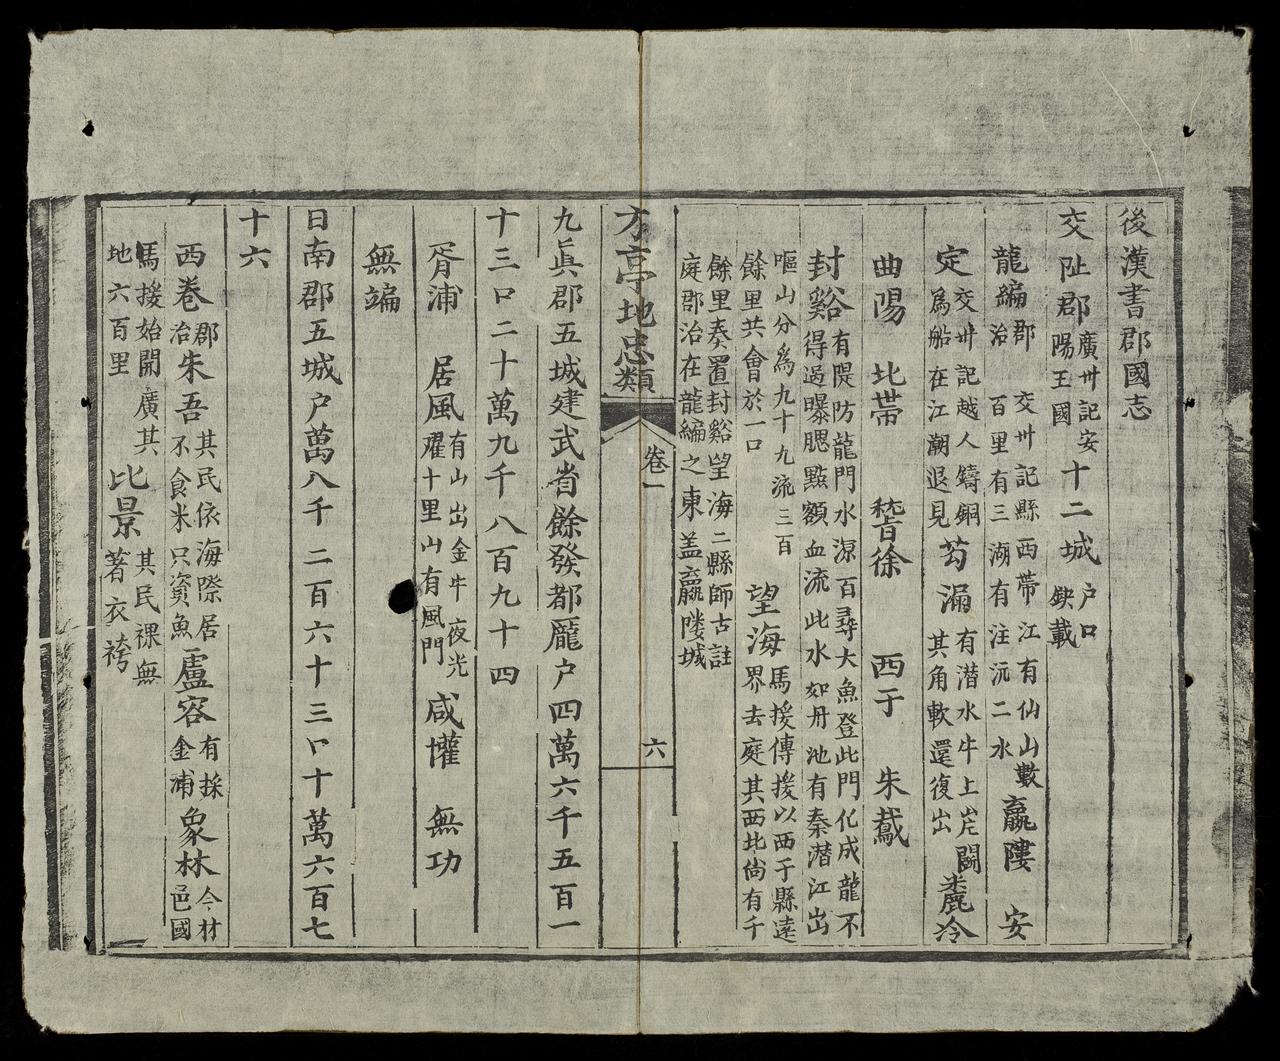 後漢書郡國志
交阯郡廣州記安陽王國十二城户口缺載
龍編郡治交州記縣西帶江有仙山數百里有三湖有注沅二水羸𨻻安
定交州記越人鑄銅為船在江潮退見苟漏有潛水牛上岸鬬其角軟還復出麊泠
曲陽 北帶 稽徐 西于 朱䳒
封谿有隄防龍門水深百尋大魚登此門化成龍不得過曝腮點額血流此水如丹池有秦潛江出
嘔山分為九十九流三百餘里共會於一口望海馬援傳援以西于縣遠界去庭其西北尚有千
餘里奏置封谿望海二縣師古註庭郡治在龍編之東盖羸𨻻城
方亭地志類 卷一 六
九真郡五城建武省餘發都龐户四萬六千五百一
十三口二十萬九千八百九十四
胥浦 居風有山出金牛夜光耀十里山有風門咸懽 無功
無端
日南郡五城户萬八千二百六十三口十萬六百七
十六
西卷郡治朱吾其民依海際居不食米只資魚盧容有採金浦象林今林邑國
馬援始開廣其地六百里比景其民裸無著衣袴